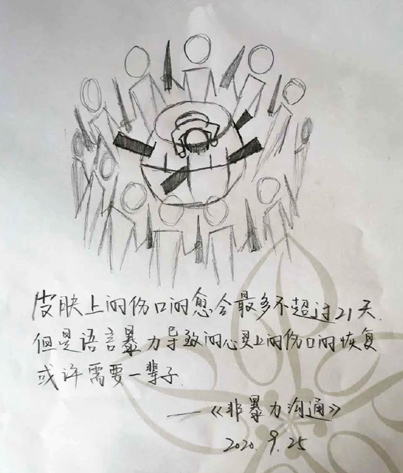 皮肤上的伤口的愈合最多不超过21天.
但是语言暴力导致的心灵上的伤口的恢复
或许需要一辈子.
——《非暴力沟通》
2020.9.25